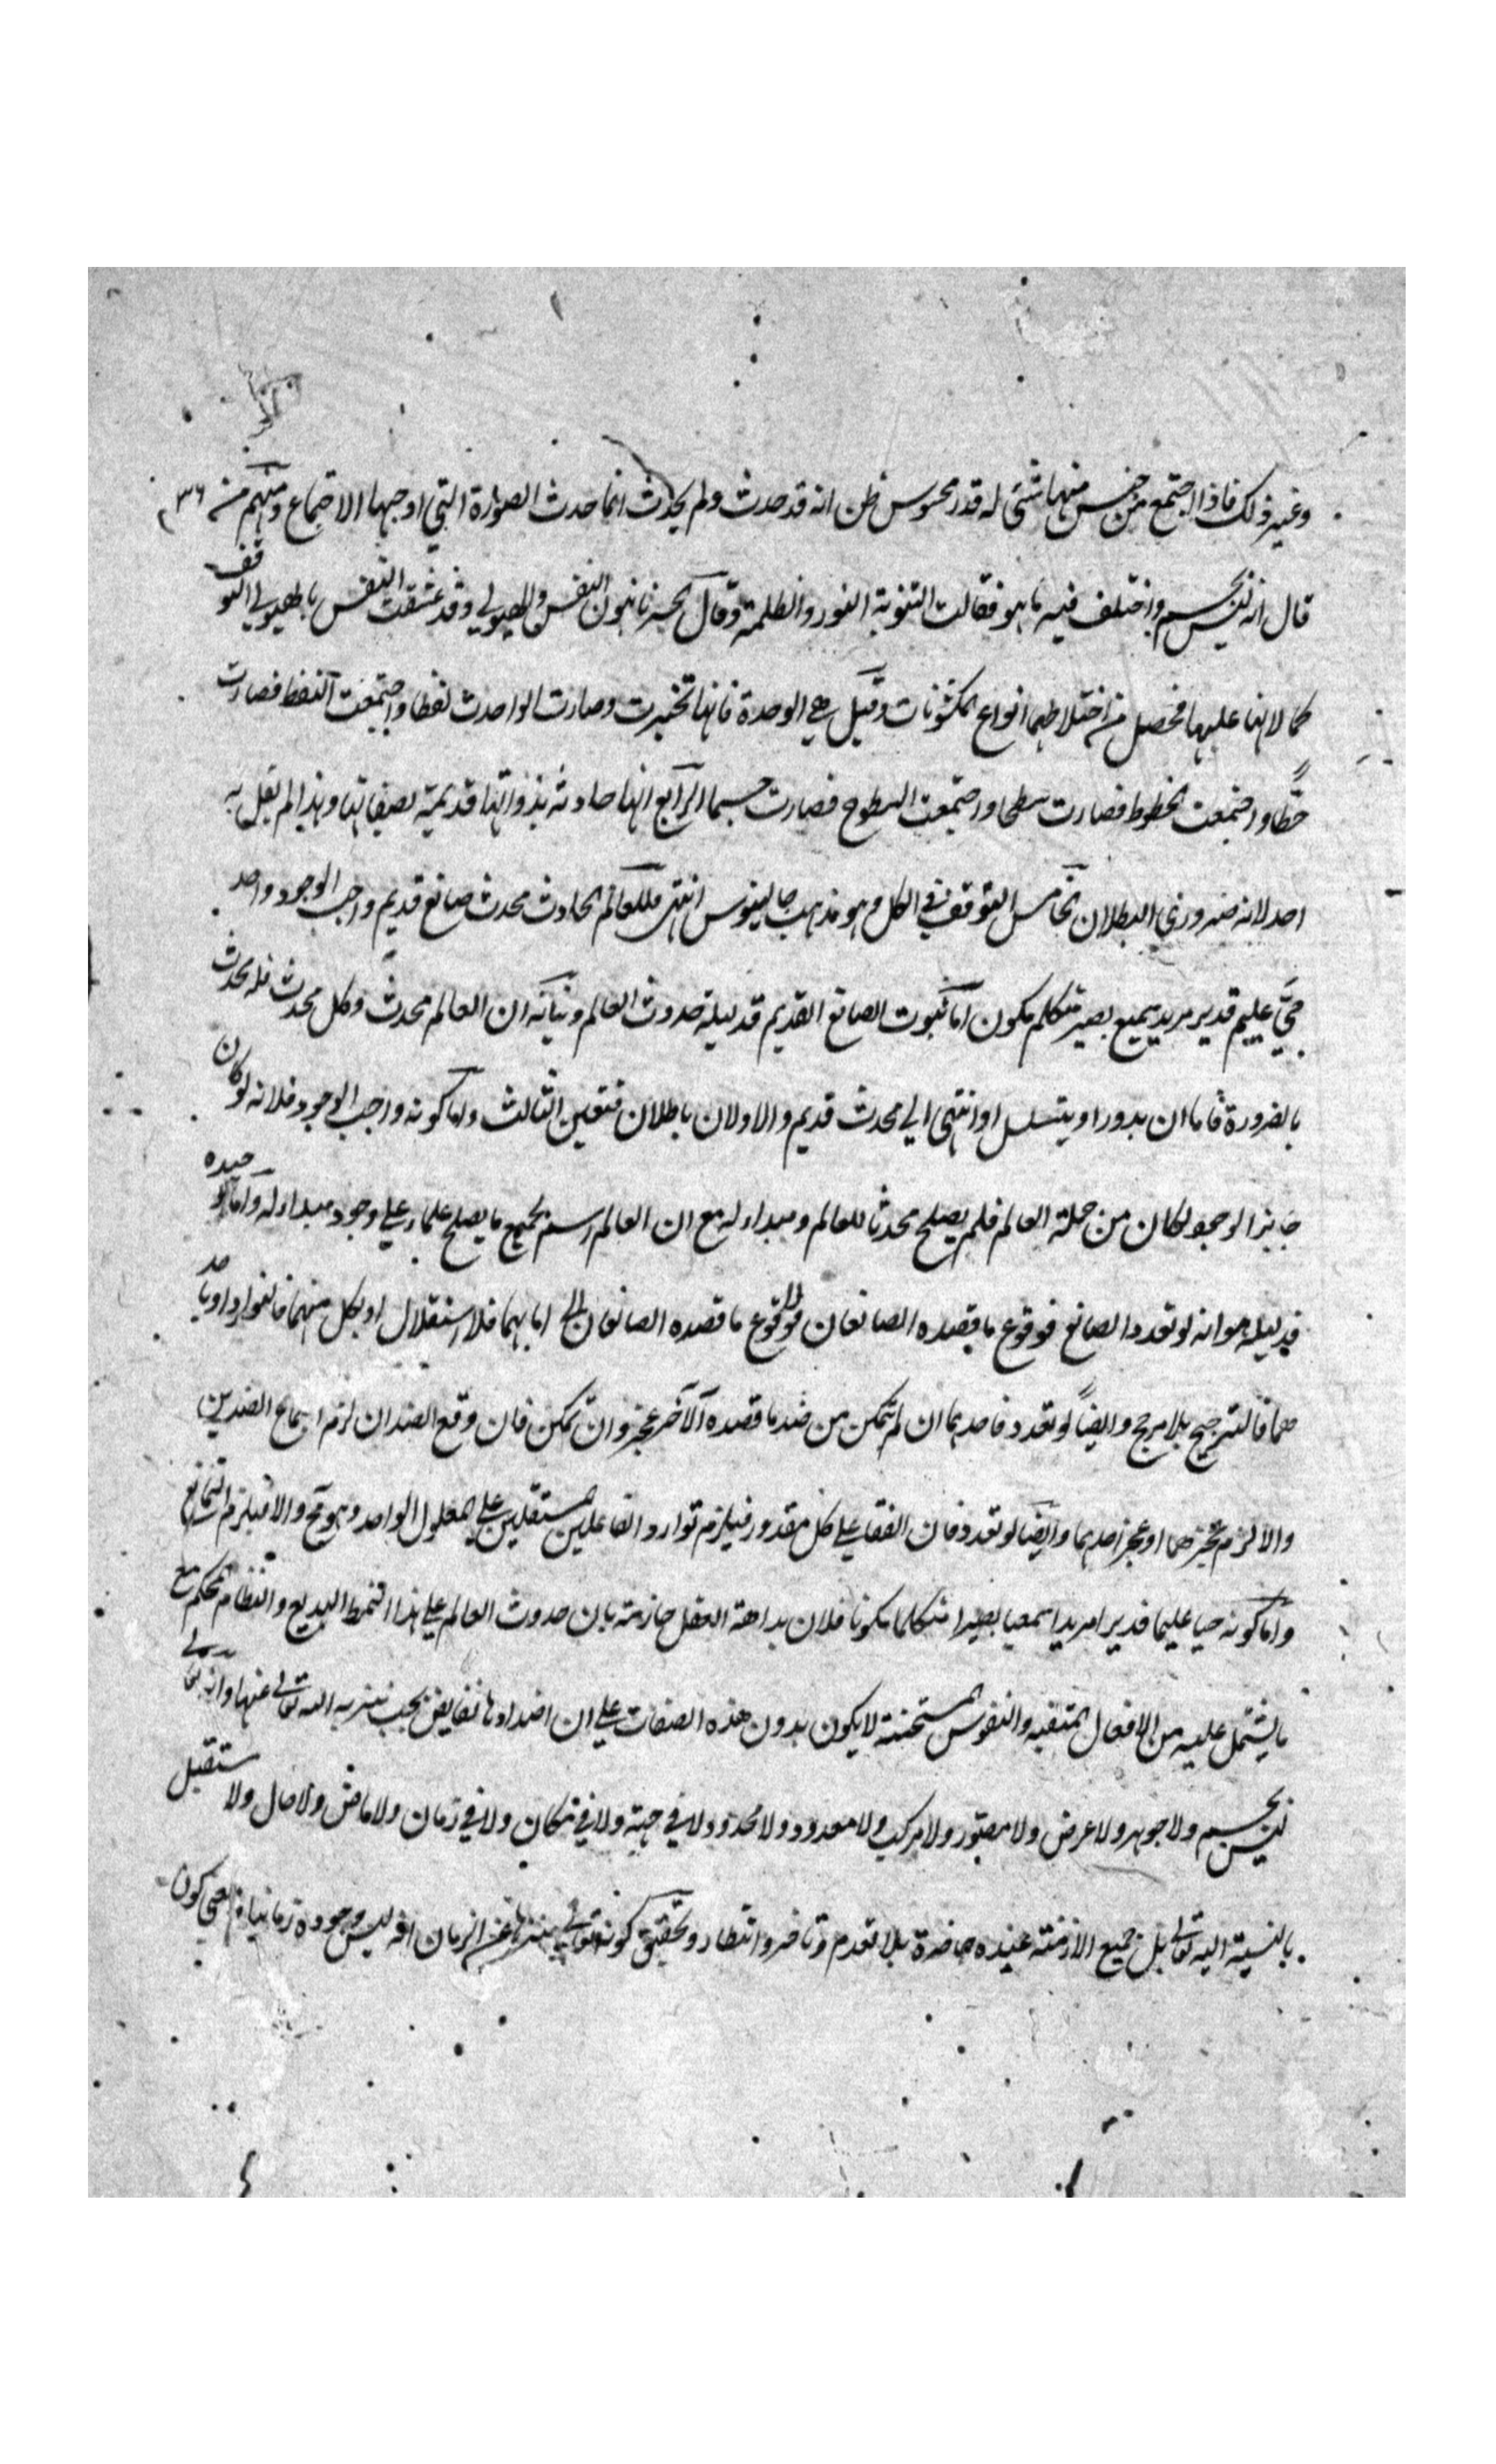 وغير ذلك فاذا اجتمع من جنس منها شئ له قدر محسوس ظن انه قد حدث ولم يحدث انما حدث الصورة التي اوجبها الاجتماع ومنهم من ٣٦
قال انه ليس بجسم واختلف فيه ما هو فقالت الثنوية النور والظلمة وقال الحرنانيون النفس والهيولي وقد عشقت النفس بالهيولي لتوقف
كمالاتها عليها فحصل من اختلاطهما انواع المكنونات وقيل هي الوحدة فانها تحيزت وصارت الواحدت نقطا واجتمعت النقط فصارت
خطا واجتمعت الخطوط فصارت سطحا واجتمعت السطوح فصارت جسما الرابع انها حادثة بذواتها قديمة بصفاتها وهذا لم يقل به
احد لانه ضروري البطلان الخامس التوقف في الكل وهو مذهب جالينوس انتهى فللعالم الحادث محدث صانع قديم واجب الوجود واحد
حيّ عليم قدير مريد سميع بصير متكلم مكون اما ثبوت الصانع القديم فدليله حدوث العالم وبيانه ان العالم محدث وكل محدث فله محدث
بالضرورة فاما ان يدور او يتسلسل او انتهى الي محدث قديم والاولان باطلان فتعين الثالث واما كونه واجب الوجود فلانه لو كان
جايز الوجود لكان من جملة العالم فلم يصلح محدثا للعالم ومبداء له مع ان العالم اسم لجميع ما يصلح علما علي وجود مبداء له واما توحيده
فدليله هو انه لو تعدد الصانع فوقوع ما قصده الصانعان اما بهما فلا استقلال او بكل منهما فالتوارد او باحد
هما فالترجيح بلا مرجح وايضاً لو تعدد فاحدهما ان لم يتمكن من ضد ما قصده الآخر عجز وان تمكن فان وقع الضدان لزم اجتماع الضدين
والا لزم عجزهما او عجز احدهما وايضا لو تعدد فان اتفقا علي كل مقدور فيلزم توارد الفاعلين المستقلين علي المعلول الواحد وهو مح والا فيلزم التمانع
واما كونه حيا عليما قديرا مريدا سميعا بصيرا متكلما مكونا فلان بداهة العقل جازمة بان حدوث العالم علي هذا النمط البديع والنظام المحكم مع
ما يشتمل عليه من الافعال المتقنه والنقوش المستحسنة لا يكون بدون هذه الصفات علي ان اضدادها نقايص يجب تنزيه الله تعالي عنها وانه تعالي
ليس بجسم ولا جوهر ولا عرض ولا مصور ولا مركب ولا معدود ولا محدود ولا في جهة ولا في مكان ولا في زمان ولا ماض ولا حال ولا مستقبل
بالنسبة اليه تعالي بل جميع الازمنة عنده حاضرة بلا تقدم وتاخر وانتظار وتحقيق كونه تعالي منزها عن الزمان انه ليس وجوده زمانيا معني كون